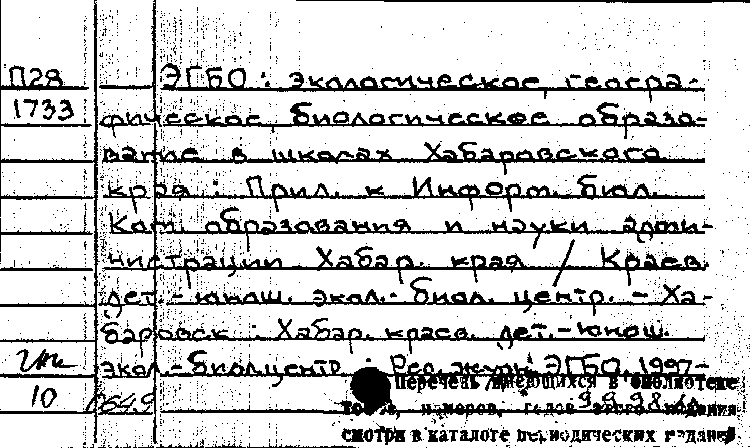 П28
1733
ЭГБО : экологическое, геогра-
фическое, биологическое образо-
вание в школах Хабаровского
края : Прил. к Информ. бюл.
Ком. образования и науки адми-
нистрации Хабар. края / Краев.
дет.-юнош. экол.-биол. центр. - Ха-
баровск : Хабар. краев. дет.-юнош.
экол.-биол.центр : Ред. журн. ЭГБО, 1997-
10
Перечень имеющихся в библиотеке
томов, номеров, годов этого издания
смотри в каталоге периодических изданий